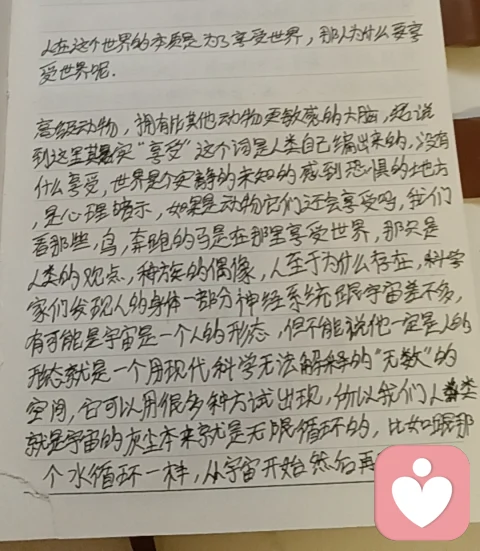 人在这个世界的本质是为了享受世界，那人为什么要享
受世界呢.
高级动物，拥有比其他动物更敏感的大脑，话说
到这里其实"享受"这个词是人类自己编出来的，没有
什么享受，世界是个安静的未知的感到恐惧的地方
，是心理暗示，如果是动物它们还会享受吗，我们
看那些，鸟，奔跑的马是在那里享受世界，那只是
人类的观点，种族的偶像，人至于为什么存在，科学
家们发现人的身体一部分神经系统跟宇宙差不多，
有可能是宇宙是一个人的形态，但不能说他一定是人的
形态就是一个用现代科学无法解释的"无数"的
空间，它可以用很多种方试出现，所以我们人类
就是宇宙的灰尘本来就是无限循环的，比如跟那
个水循环一样，从宇宙开始然后再